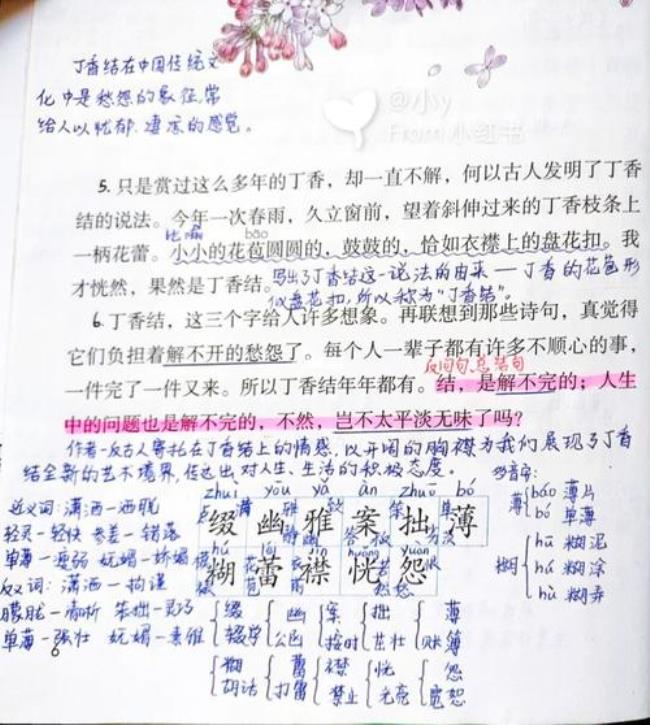 丁香结在中国传统文
化中是愁怨的象征,常
给人以忧郁、凄凉的感觉。
@小y
From 小红书
5. 只是赏过这么多年的丁香,却一直不解,何以古人发明了丁香
结的说法。今年一次春雨,久立窗前,望着斜伸过来的丁香枝条上
比喻 bāo
一柄花蕾。小小的花苞圆圆的,鼓鼓的,恰如衣襟上的盘花扣。我
才恍然,果然是丁香结。写出了丁香结这一说法的由来—丁香的花苞形
似盘花扣,所以称为“丁香结”。
6. 丁香结,这三个字给人许多想象。再联想到那些诗句,真觉得
它们负担着解不开的愁怨了。每个人一辈子都有许多不顺心的事,
反问句,总结句
一件完了一件又来。所以丁香结年年都有。结,是解不完的;人生
中的问题也是解不完的,不然,岂不太平淡无味了吗?
作者一反古人寄托在丁香结上的情感,以开阔的胸襟为我们展现了丁香
结全新的艺术境界,传达出对人生、生活的积极态度。 多音字:
近义词:潇洒—洒脱
轻灵—轻快 参差—错落
单薄—瘦弱 妩媚—娇媚
反义词:潇洒—拘谨
朦胧—清晰 笨拙—灵巧
单薄—强壮 妩媚—素雅
zhuì yōu yǎ àn zhuō bó
缀 幽 雅 案 拙 薄
hú lěi jīn huǎng yuàn
糊 蕾 襟 恍 怨
薄 báo 薄片
bó 单薄
糊 hū 糊泥
hú 糊涂
hù 糊弄
缀 幽 案 拙 薄
辍学 公函 按时 茁壮 账簿
糊 蕾 襟 恍 怨
胡话 打雷 禁止 光亮 宽恕